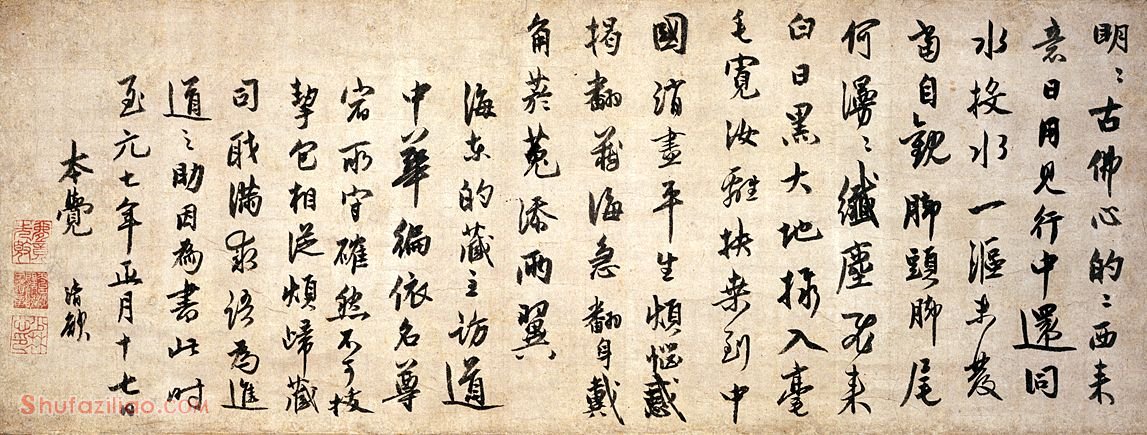 明〻古佛心的〻西来
意日用見行中還同
水投水一漚未發
當自觀脚頭脚尾
何漫〻纖塵起来
白日黑大地撮入毫
毛寬汝離扶桒到中
國消盡平生煩惱惑
揭翻藏海急翻身戴
角菸菟添兩翼
海东的藏主訪道
中華徧依名尊
宿所守確然不可拔
挈包相從煩歸藏
司職滿求語為進
道之助因為書此时
至元七年正月十七日
本覺 清欲
Shufaziliao.com